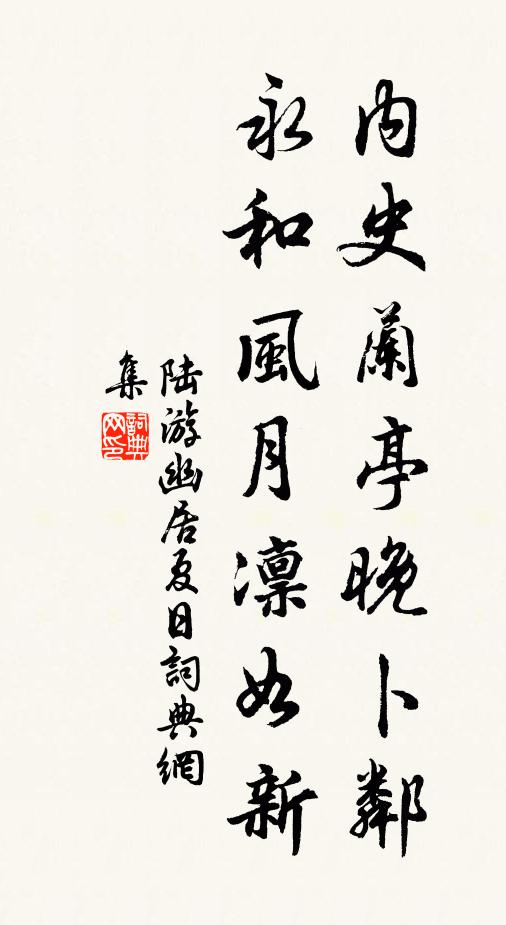 内史蘭亭晚卜鄰
永和風月凛如新
陆游幽居夏日詞典網
集
詞典网印